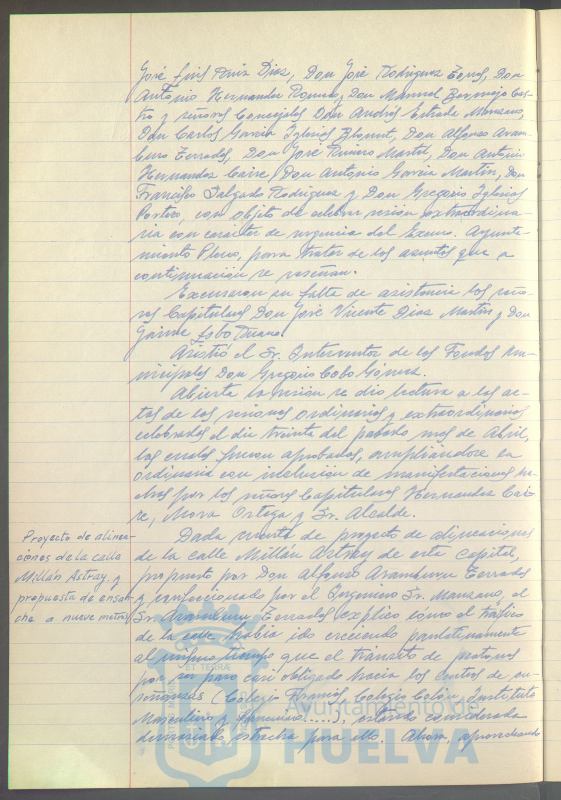 José Luis Ruiz Díaz, Don José Rodríguez Don
Antonio Hernandez Romero, Don Manuel Bermejo Cas-
tro y señores Concejales Don Andrés Estrada Manzano,
Don Carlos García Iglesias Don Alfonso Aram-
buru Terrades, Don José Rivero Martín, Don Antonio
Hernandez Don Antonio García Martín, Don
Francisco Salgado Rodríguez y Don Gregorio Iglesias
con objeto de celebrar sesión extraordina-
ria con carácter de urgencia del Excmo. Ayunta-
miento Pleno, para tratar de los asuntos que a
continuación se reseñan.
Excusaron su falta de asistencia los seño-
res Capitulares Don José Vicente Díaz Martín y Don
Jaime
Asistió el Sr. Interventor de los Fondos Mu-
nicipales Don Gregorio Cobo Gómez.
Abierta la sesión se dio lectura a las ac-
tas de las sesiones ordinarias y extraordinarias
celebradas el día treinta del pasado mes de Abril,
las cuales fueron aprobadas, ampliándose la
ordinaria con inclusión de manifestaciones he-
chas por los señores Capitulares Hernandez
Mora Ortega y Sr. Alcalde.
Proyecto de alinea-
ciones de la calle
Millán Astray y
propuesta de ensan-
che a nueve metros
Dada cuenta de proyecto de alineaciones
de la calle Millán Astray de esta capital,
propuesto por Don Alfonso Aramburu Terrades
y confeccionado por el Ingeniero Sr. Manzano, el
Sr. Aramburu Terrades explicó cómo el tráfico
de la calle había ido creciendo paulatinamente
al mismo tiempo que el tránsito de peatones
por su paso casi obligado hacia los centros de en-
señanzas (Colegio Colegio Colón, Instituto
Masculino y Femenino.....), estando considerada
demasiado estrecha para ello. Ahora, aprovechando
Ayuntamiento de
HUELVA